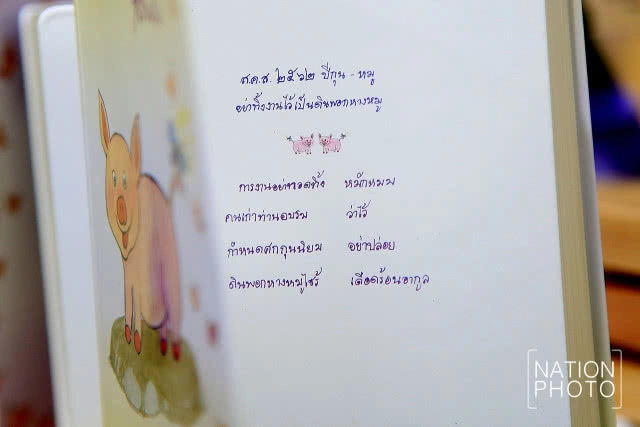 ส.ค.ส. ๒๕๖๒ ปีกุน - หมู
อย่าทิ้งงานไว้เป็นดินพอกหางหมู
การงานอย่าทอดทิ้ง หมักหมม
คนเก่าท่านอบรม ว่าไว้
กำหนดศกกุนนิยม อย่าปล่อย
ดินพอกหางหมูไซร้ เดือดร้อนอากูล
NATION
PHOTO